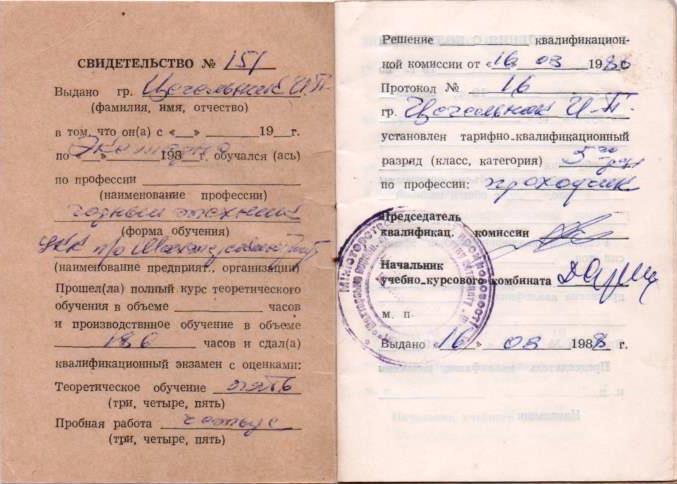 СВИДЕТЕЛЬСТВО № 151
Выдано гр. И.П.
(фамилия, имя, отчество)
в том, что он(а) с «__» 19 г.
по 198 г. обучался (ась)
по профессии
(наименование профессии)
горный техник
(форма обучения)
УКК
(наименование предприят., организации)
Прошел(ла) полный курс теоретического
обучения в объеме часов
и производственное обучение в объеме
часов и сдал(а)
квалификационный экзамен с оценками:
Теоретическое обучение пять
(три, четыре, пять)
Пробная работа четыре
(три, четыре, пять)
Решение квалификацион-
ной комиссии от «16 03 198
Протокол № 16
гр. И.П.
установлен тарифно-квалификационный
разряд (класс, категория) 5
по профессии: проходчик
Председатель
квалификац. комиссии
Начальник
учебно-курсового комбината
м. п.
Выдано 16 03 198 г.